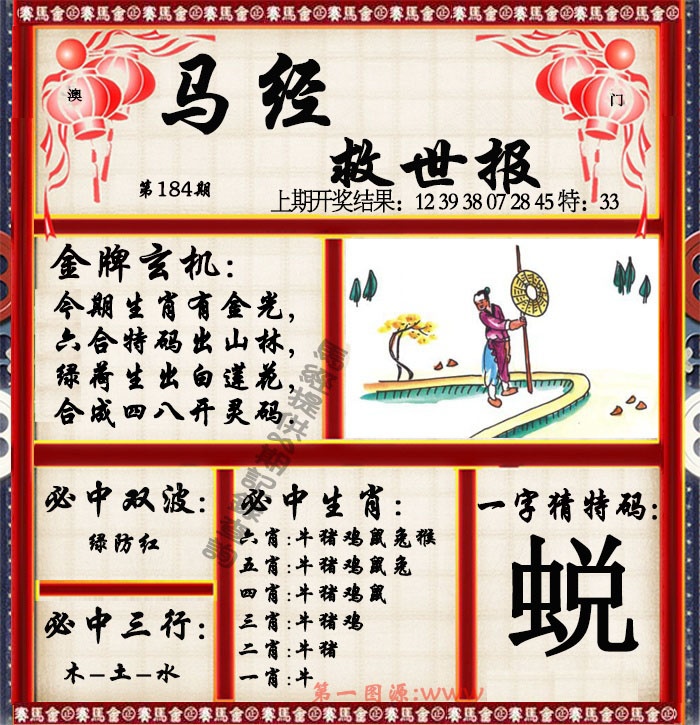 賽馬會 賽馬會 賽馬會 賽馬會 賽馬會 賽馬會 賽馬會 賽馬會
澳
门
马经
救世报
第184期
上期开奖结果：12 39 38 07 28 45 特：33
金牌玄机：
今期生肖有金光，
六合特码出山林，
绿荷生出白莲花，
合成四八开灵码．
必中双波：
绿防红
必中三行：
木–土–水
必中生肖：
六肖:牛猪鸡鼠兔猴
五肖:牛猪鸡鼠兔
四肖:牛猪鸡鼠
三肖:牛猪鸡
二肖:牛猪
一肖:牛
一字猜特码:
蜕
第一图源:www